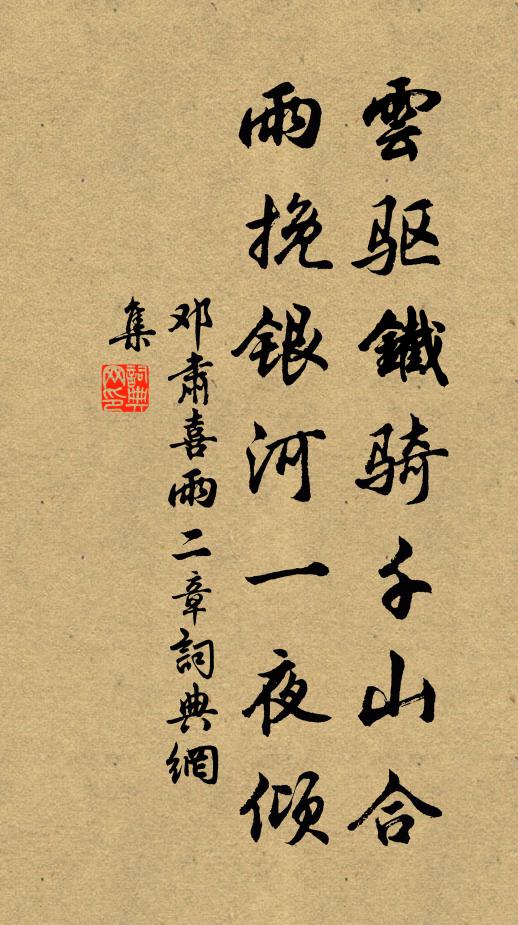 雲驱鐵骑千山合
雨挽銀河一夜倾
邓肃喜雨二章詞典網
集
詞典
网印